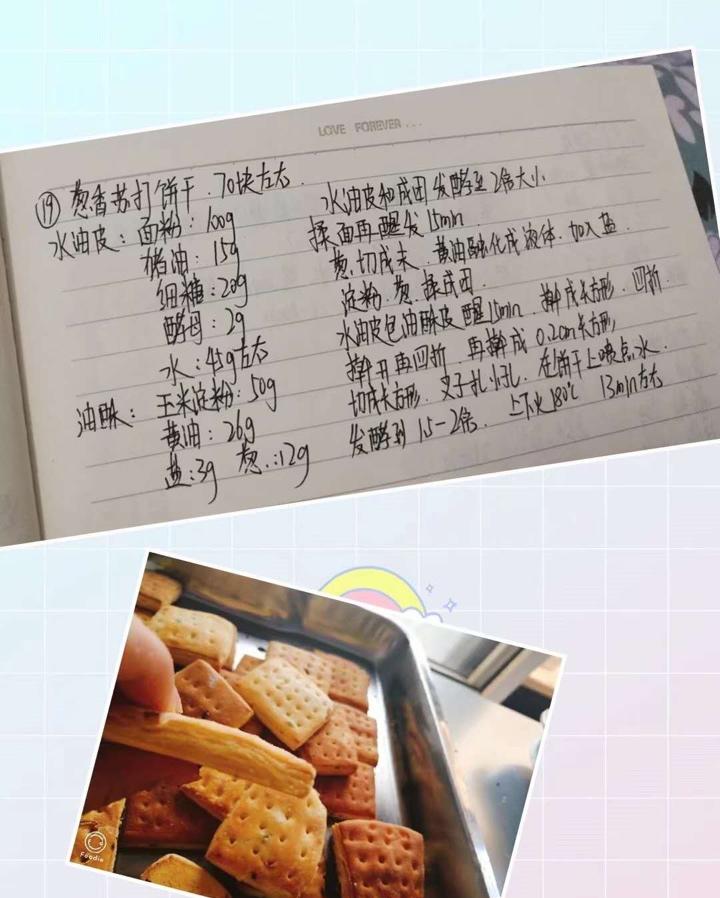 LOVE FOREVER...
⑲ 葱香苏打饼干.70块左右.
水油皮：面粉：100g
猪油：15g
细糖：20g
酵母：2g
水：45g左右
油酥：玉米淀粉：50g
黄油：26g
盐：3g 葱：12g
水油皮和成团发酵至2倍大小
揉面再醒发15min
葱.切成末.黄油融化成液体.加入盐.
淀粉.葱.揉成团.
水油皮包油酥皮醒15min.擀成长方形.四折.
擀开再四折.再擀成0.2cm长方形,
切成长方形.叉子扎小孔.在饼干上喷点水.
发酵到1.5-2倍.上下火180℃ 13min左右
Foodie